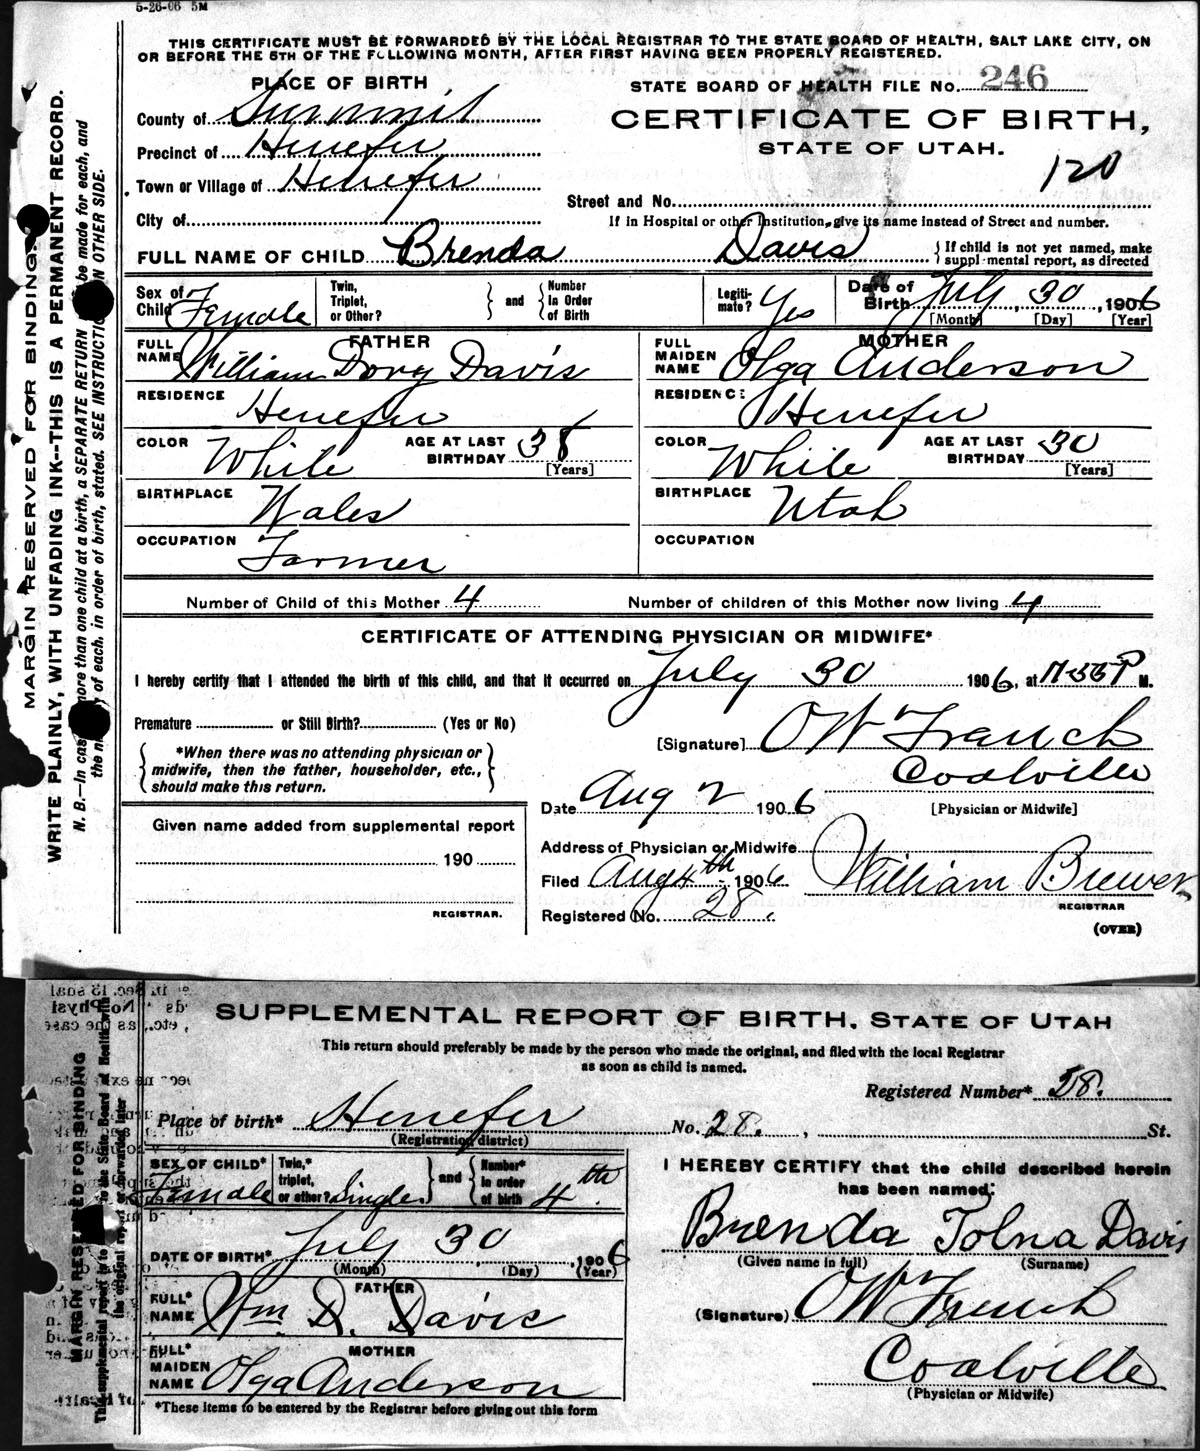 5-26-06 5M
THIS CERTIFICATE MUST BE FORWARDED BY THE LOCAL REGISTRAR TO THE STATE BOARD OF HEALTH, SALT LAKE CITY, ON
OR BEFORE THE 5TH OF THE FOLLOWING MONTH, AFTER FIRST HAVING BEEN PROPERLY REGISTERED.
PLACE OF BIRTH
STATE BOARD OF HEALTH FILE NO. 246
County of Summit
CERTIFICATE OF BIRTH,
STATE OF UTAH.
Precinct of Henefer
120
Town or Village of Henefer
Street and No.
City of
If in Hospital or other Institution, give its name instead of Street and number.
FULL NAME OF CHILD Brenda Davis { If child is not yet named, make
supplemental report, as directed
Sex of Child Female
Twin, Triplet, or Other? } and { Number In Order of Birth
Legitimate? Yes
Date of Birth July 30, 1906
[Month] [Day] [Year]
FATHER
FULL NAME William Dovy Davis
RESIDENCE Henefer
COLOR White AGE AT LAST BIRTHDAY 38
[Years]
BIRTHPLACE Wales
OCCUPATION Farmer
MOTHER
FULL MAIDEN NAME Olga Anderson
RESIDENCE Henefer
COLOR White AGE AT LAST BIRTHDAY 30
[Years]
BIRTHPLACE Utah
OCCUPATION
Number of Child of this Mother 4 Number of children of this Mother now living 4
CERTIFICATE OF ATTENDING PHYSICIAN OR MIDWIFE*
I hereby certify that I attended the birth of this child, and that it occurred on July 30 1906, at P M.
Premature or Still Birth? (Yes or No)
*When there was no attending physician or
midwife, then the father, householder, etc.,
should make this return.
[Signature] O W French
Coalville
Date Aug 2 1906 [Physician or Midwife]
Given name added from supplemental report
190
REGISTRAR.
Address of Physician or Midwife
Filed Aug 4th 1906 William Brewer
REGISTRAR
Registered No. 28.
(OVER)
MARGIN RESERVED FOR BINDING.
WRITE PLAINLY, WITH UNFADING INK--THIS IS A PERMANENT RECORD.
N. B.—In case more than one child at a birth, a SEPARATE RETURN be made for each, and
the of each, in order of birth, stated. SEE INSTRUCTIONS ON OTHER SIDE.
SUPPLEMENTAL REPORT OF BIRTH. STATE OF UTAH
This return should preferably be made by the person who made the original, and filed with the local Registrar
as soon as child is named.
Registered Number* 28.
Place of birth* Henefer No. 28. , St.
(Registration district)
SEX OF CHILD* Female
Twin,* triplet, or other? Single } and { Number* in order of birth 4th
DATE OF BIRTH* July 30, 1906
(Month) (Day) (Year)
FATHER
FULL* NAME Wm. D. Davis
MOTHER
FULL* MAIDEN NAME Olga Anderson
*These items to be entered by the Registrar before giving out this form
I HEREBY CERTIFY that the child described herein
has been named:
Brenda Tolna Davis
(Given name in full) (Surname)
(Signature) O W French
Coalville
(Physician or Midwife)
MARGIN RESERVED FOR BINDING
This supplemental report is to the State Board of Health with
the original report or forwarded later